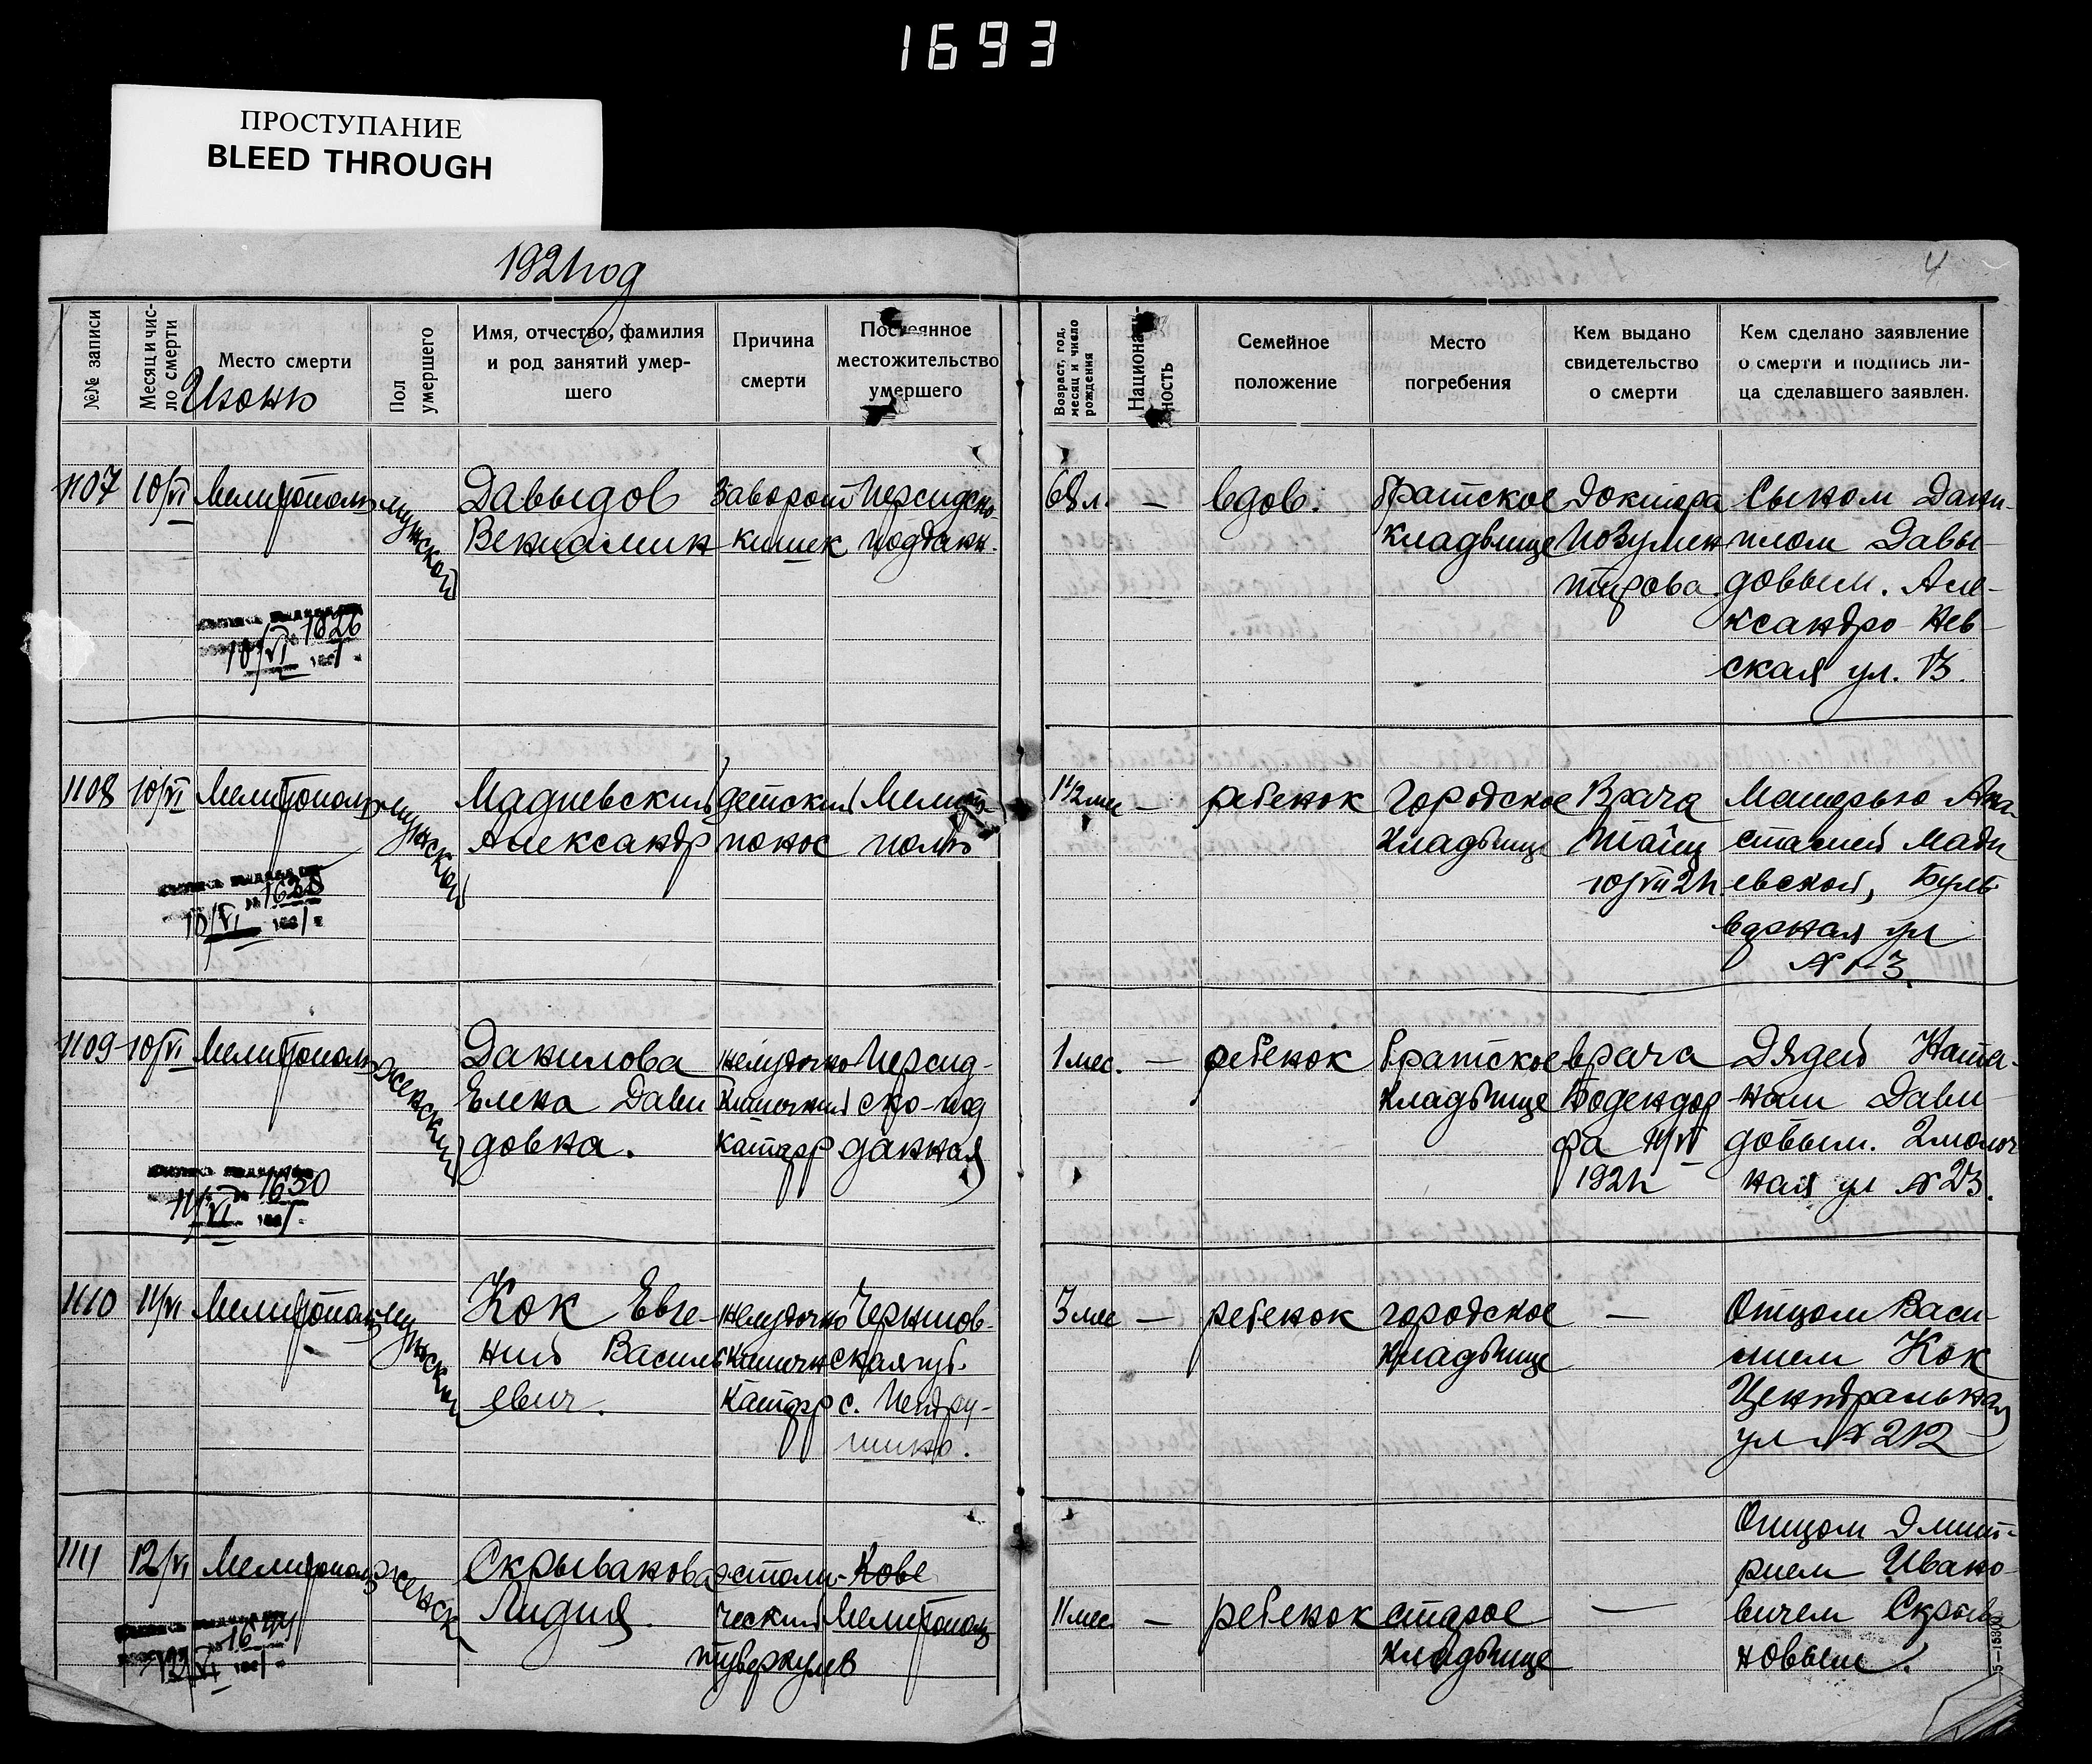 1693
ПРОСТУПАНИЕ
BLEED THROUGH
1921 год
4
№№ записи
Месяц и чис-
ло смерти
Место смерти
Июнь
Пол
умершего
Имя, отчество, фамилия
и род занятий умер-
шего
Причина
смерти
Постоянное
местожительство
умершего
Возраст, год,
месяц и число
рождения
Национальн-
ность
Семейное
положение
Место
погребения
Кем выдано
свидетельство
о смерти
Кем сделано заявление
о смерти и подпись ли-
ца сделавшего заявлен.
1107
10/VI
Мелитополь
мужской
Давыдов
Вениамин
Заворот
кишек
Персидско-
поддан.
68 л.
—
вдов.
братское
кладбище
Доктора
тирова
Сыном Дани-
илом Давы-
довым. Але-
ксандро Нев-
ская ул. 13.
1626
10/VI 1921
1108
10/VI
Мелитополь
мужской
Мадиевский
Александр
детский
понос
Мелито-
поль
1 1/2 мес
—
ребенок
городское
кладбище
Врача
Тайц
10/VII 21 г.
Матерью Ана-
стасией Мади
евской, Буль
варная ул
№ 13
10/VI 1921
1109
10/VI
Мелитополь
женский
Данилова
Елена Дави
довна.
желудочно
кишечный
катарр
Персид-
ско-под
данная
1 мес.
—
ребенок
братское
кладбище
врача
Бодендор
фа 11/VI
1921 г
Дядей Ната-
ном Дави-
довым. 2 молоч
ная ул № 23.
1630
11/VI 1921
1110
11/VI
Мелитополь
мужский
Кок Евге-
ний Василь
евич.
желудочно
кишечн
катарр
Чернигов-
ская губ.
с.
3 мес
—
ребенок
городское
кладбище
—
Отцом Васи-
лием Кок
Центральная
ул № 212
1111
12/VI
Мелитополь
женск
Скрыванова
Лидия.
ческий
туберкулез
Мелитополь
11 мес.
—
ребенок
старое
кладбище
—
Отцом Дмит-
рием Ивано-
вичем Скрыва
новым.
12/VI 1921